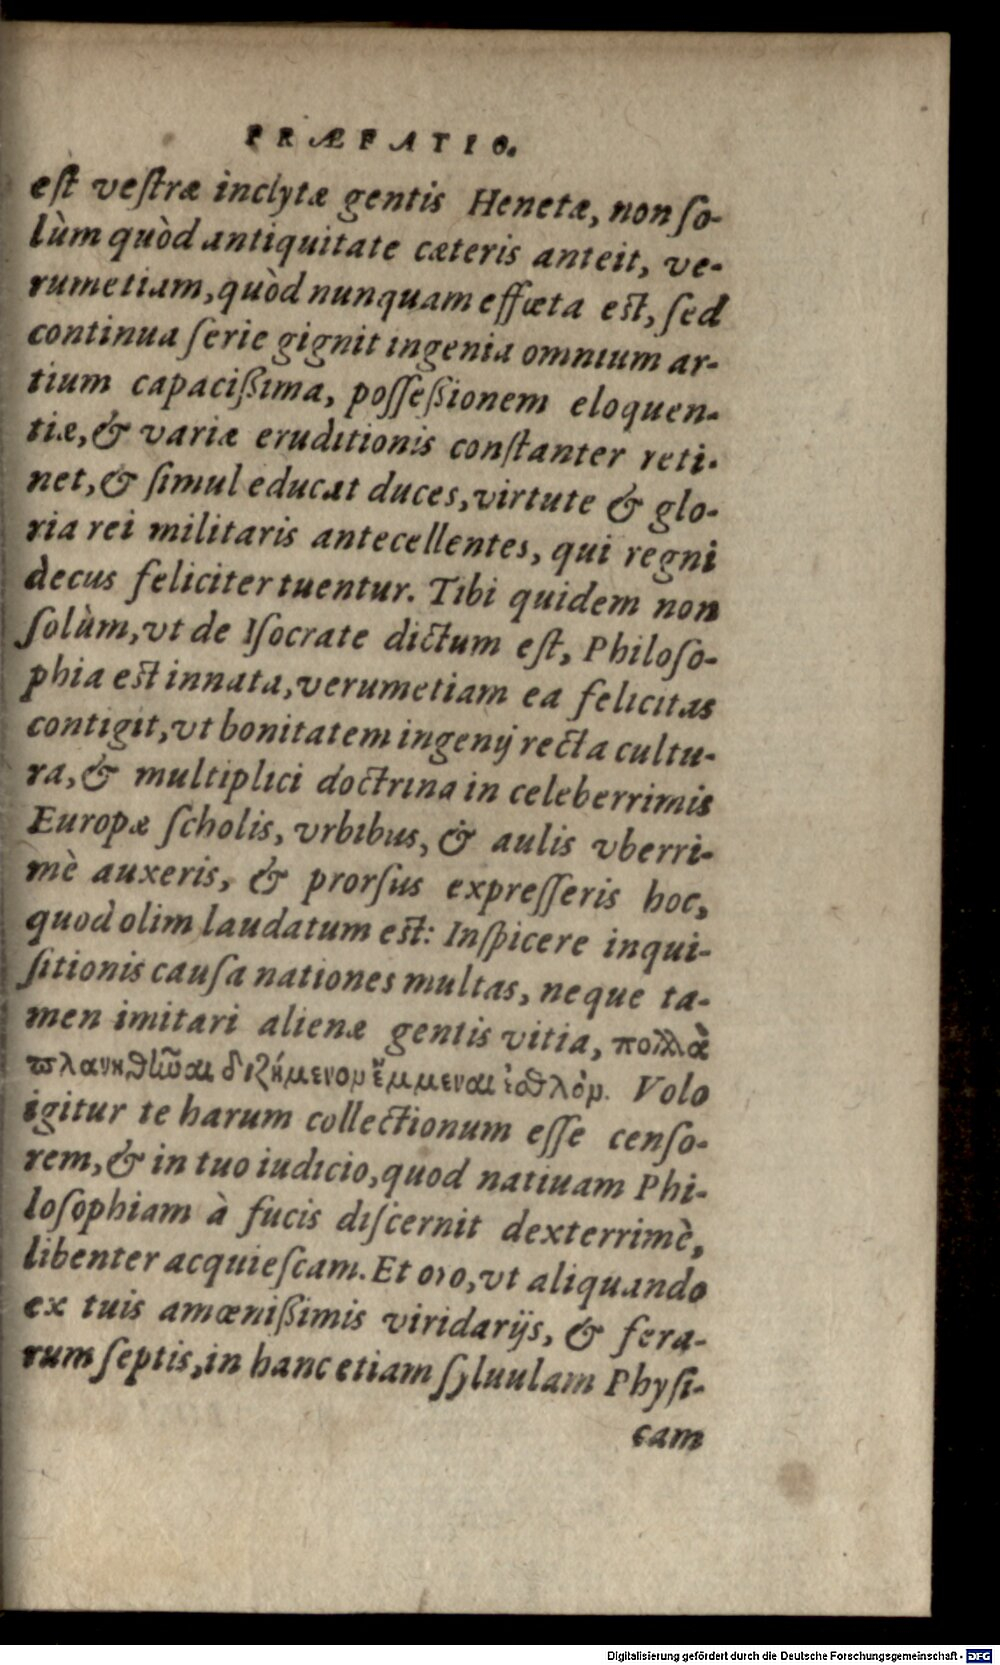 PRÆFATIO.
eſt veſtræ inclytæ gentis Henetæ, non ſo-
lùm quòd antiquitate cæteris anteit, ve-
rumetiam, quòd nunquam effœta eſt, ſed
continua ſerie gignit ingenia omnium ar-
tium capacißima, poſſeßionem eloquen-
tiæ, & variæ eruditionis conſtanter reti-
net, & ſimul educat duces, virtute & glo-
ria rei militaris antecellentes, qui regni
decus feliciter tuentur. Tibi quidem non
ſolùm, vt de Iſocrate dictum eſt, Philoſo-
phia eſt innata, verumetiam ea felicitas
contigit, vt bonitatem ingenij recta cultu-
ra, & multiplici doctrina in celeberrimis
Europæ ſcholis, vrbibus, & aulis vberri-
mè auxeris, & prorſus expreſſeris hoc,
quod olim laudatum eſt: Inſpicere inqui-
ſitionis cauſa nationes multas, neque ta-
men imitari alienæ gentis vitia, πολλὰ
πλανηθῶαι διζήμενον ἔμμεναι ἐσθλόν. Volo
igitur te harum collectionum eſſe cenſo-
rem, & in tuo iudicio, quod natiuam Phi-
loſophiam à fucis diſcernit dexterrimè,
libenter acquieſcam. Et oro, vt aliquando
ex tuis amœnißimis viridarijs, & fera-
rum ſeptis, in hanc etiam ſyluulam Phyſi-
cam
Digitalisierung gefördert durch die Deutsche Forschungsgemeinschaft - DFG